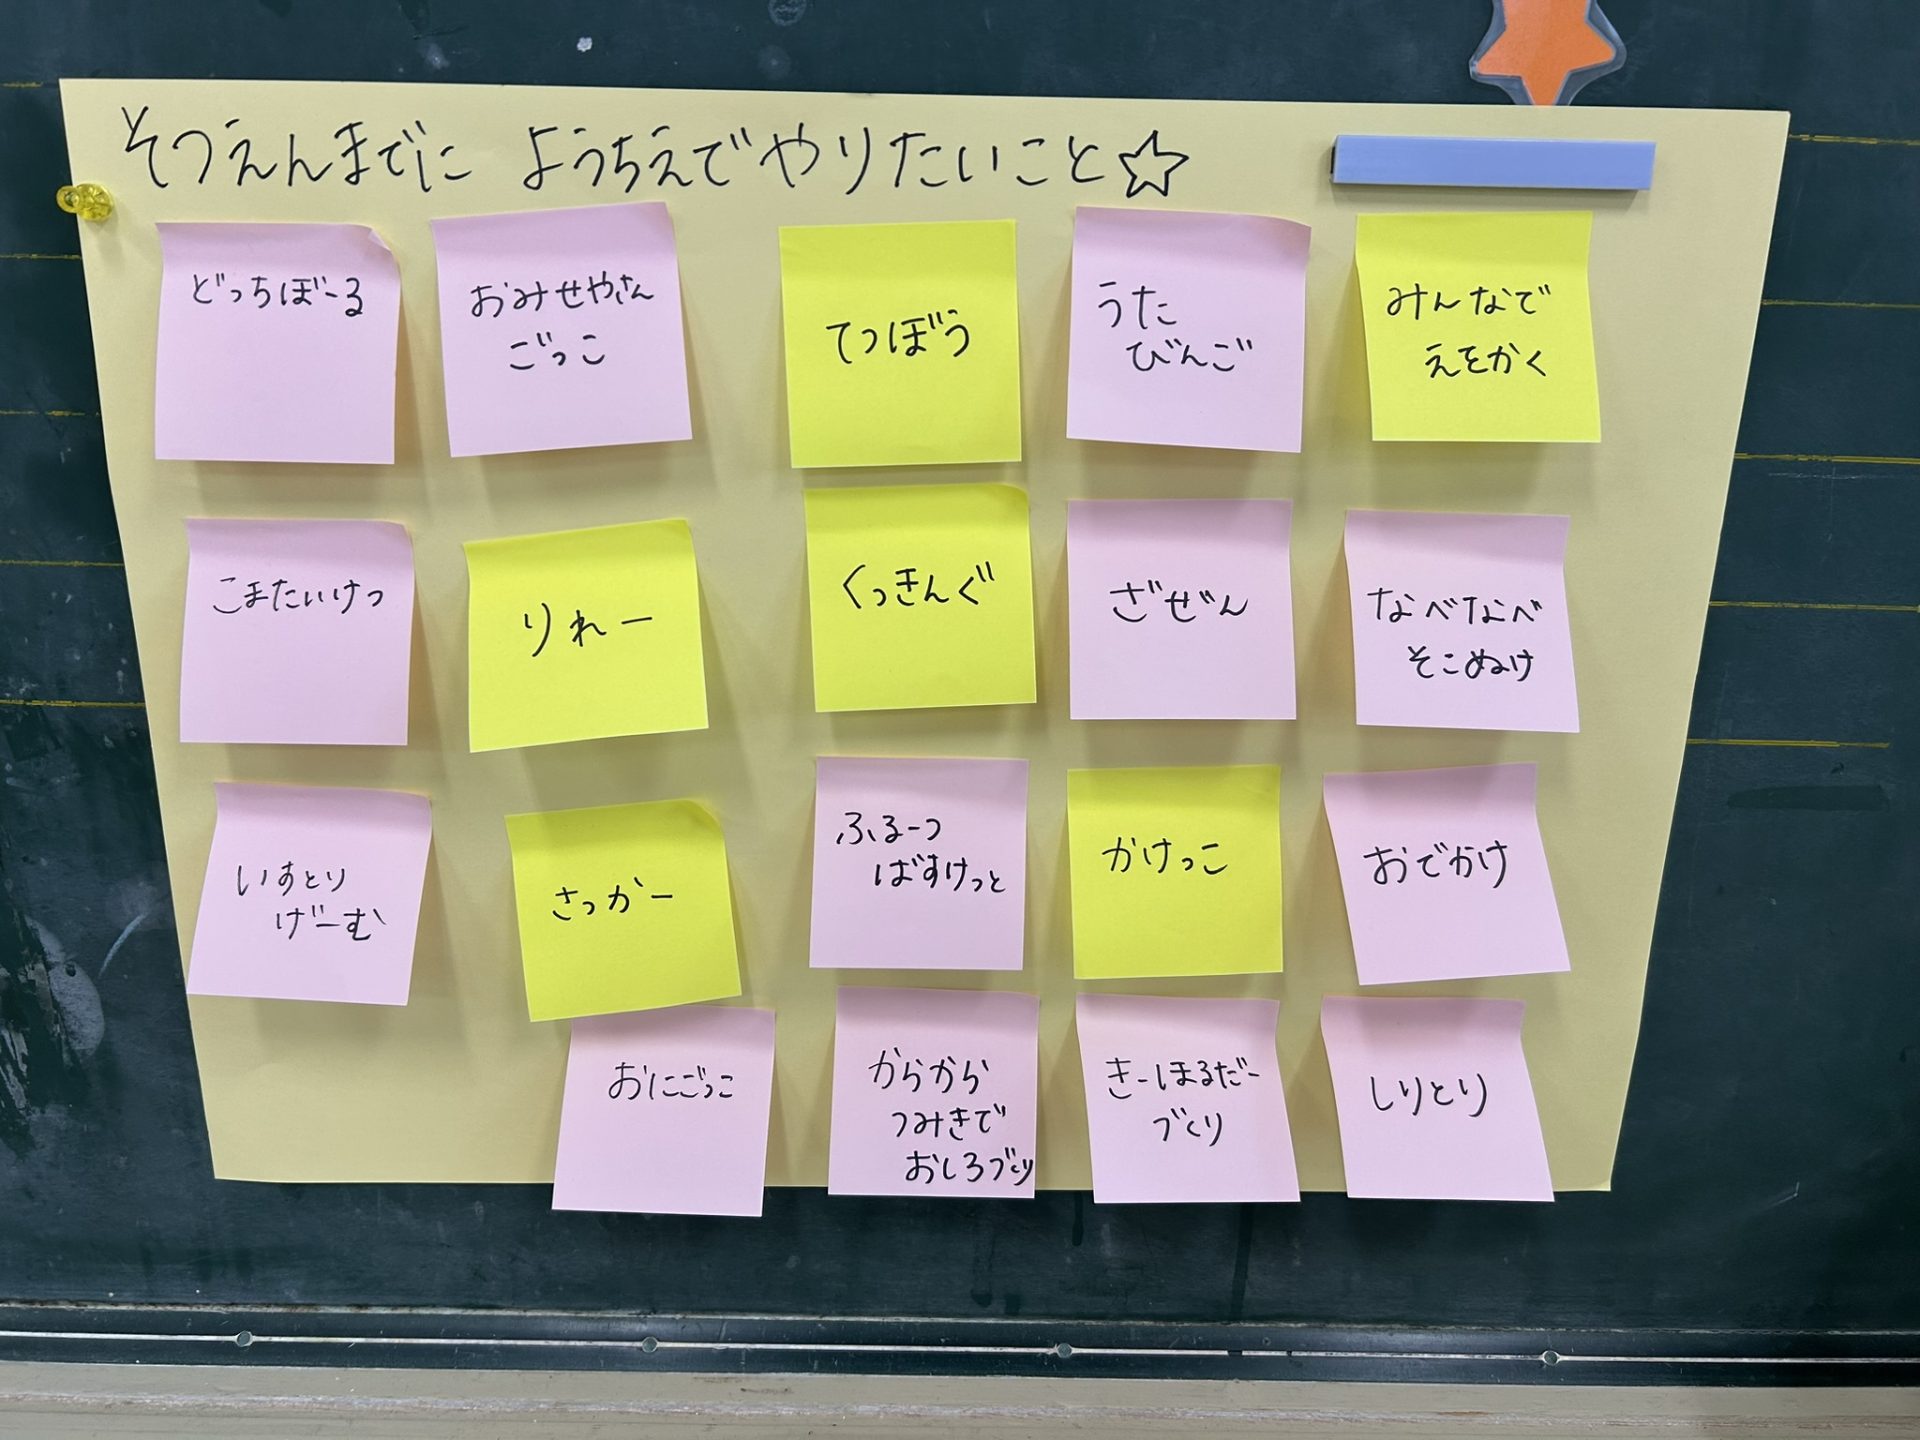 そつえんまでに ようちえでやりたいこと☆
どっちぼーる
おみせやさん
ごっこ
てつぼう
うた
びんご
みんなで
えをかく
こまたいけつ
りれー
くっきんぐ
ざぜん
なべなべ
そこぬけ
いすとり
げーむ
さっかー
ふるーつ
ばすけっと
かけっこ
おでかけ
おにごっこ
からから
つみきで
おしろづくり
きーほるだー
づくり
しりとり